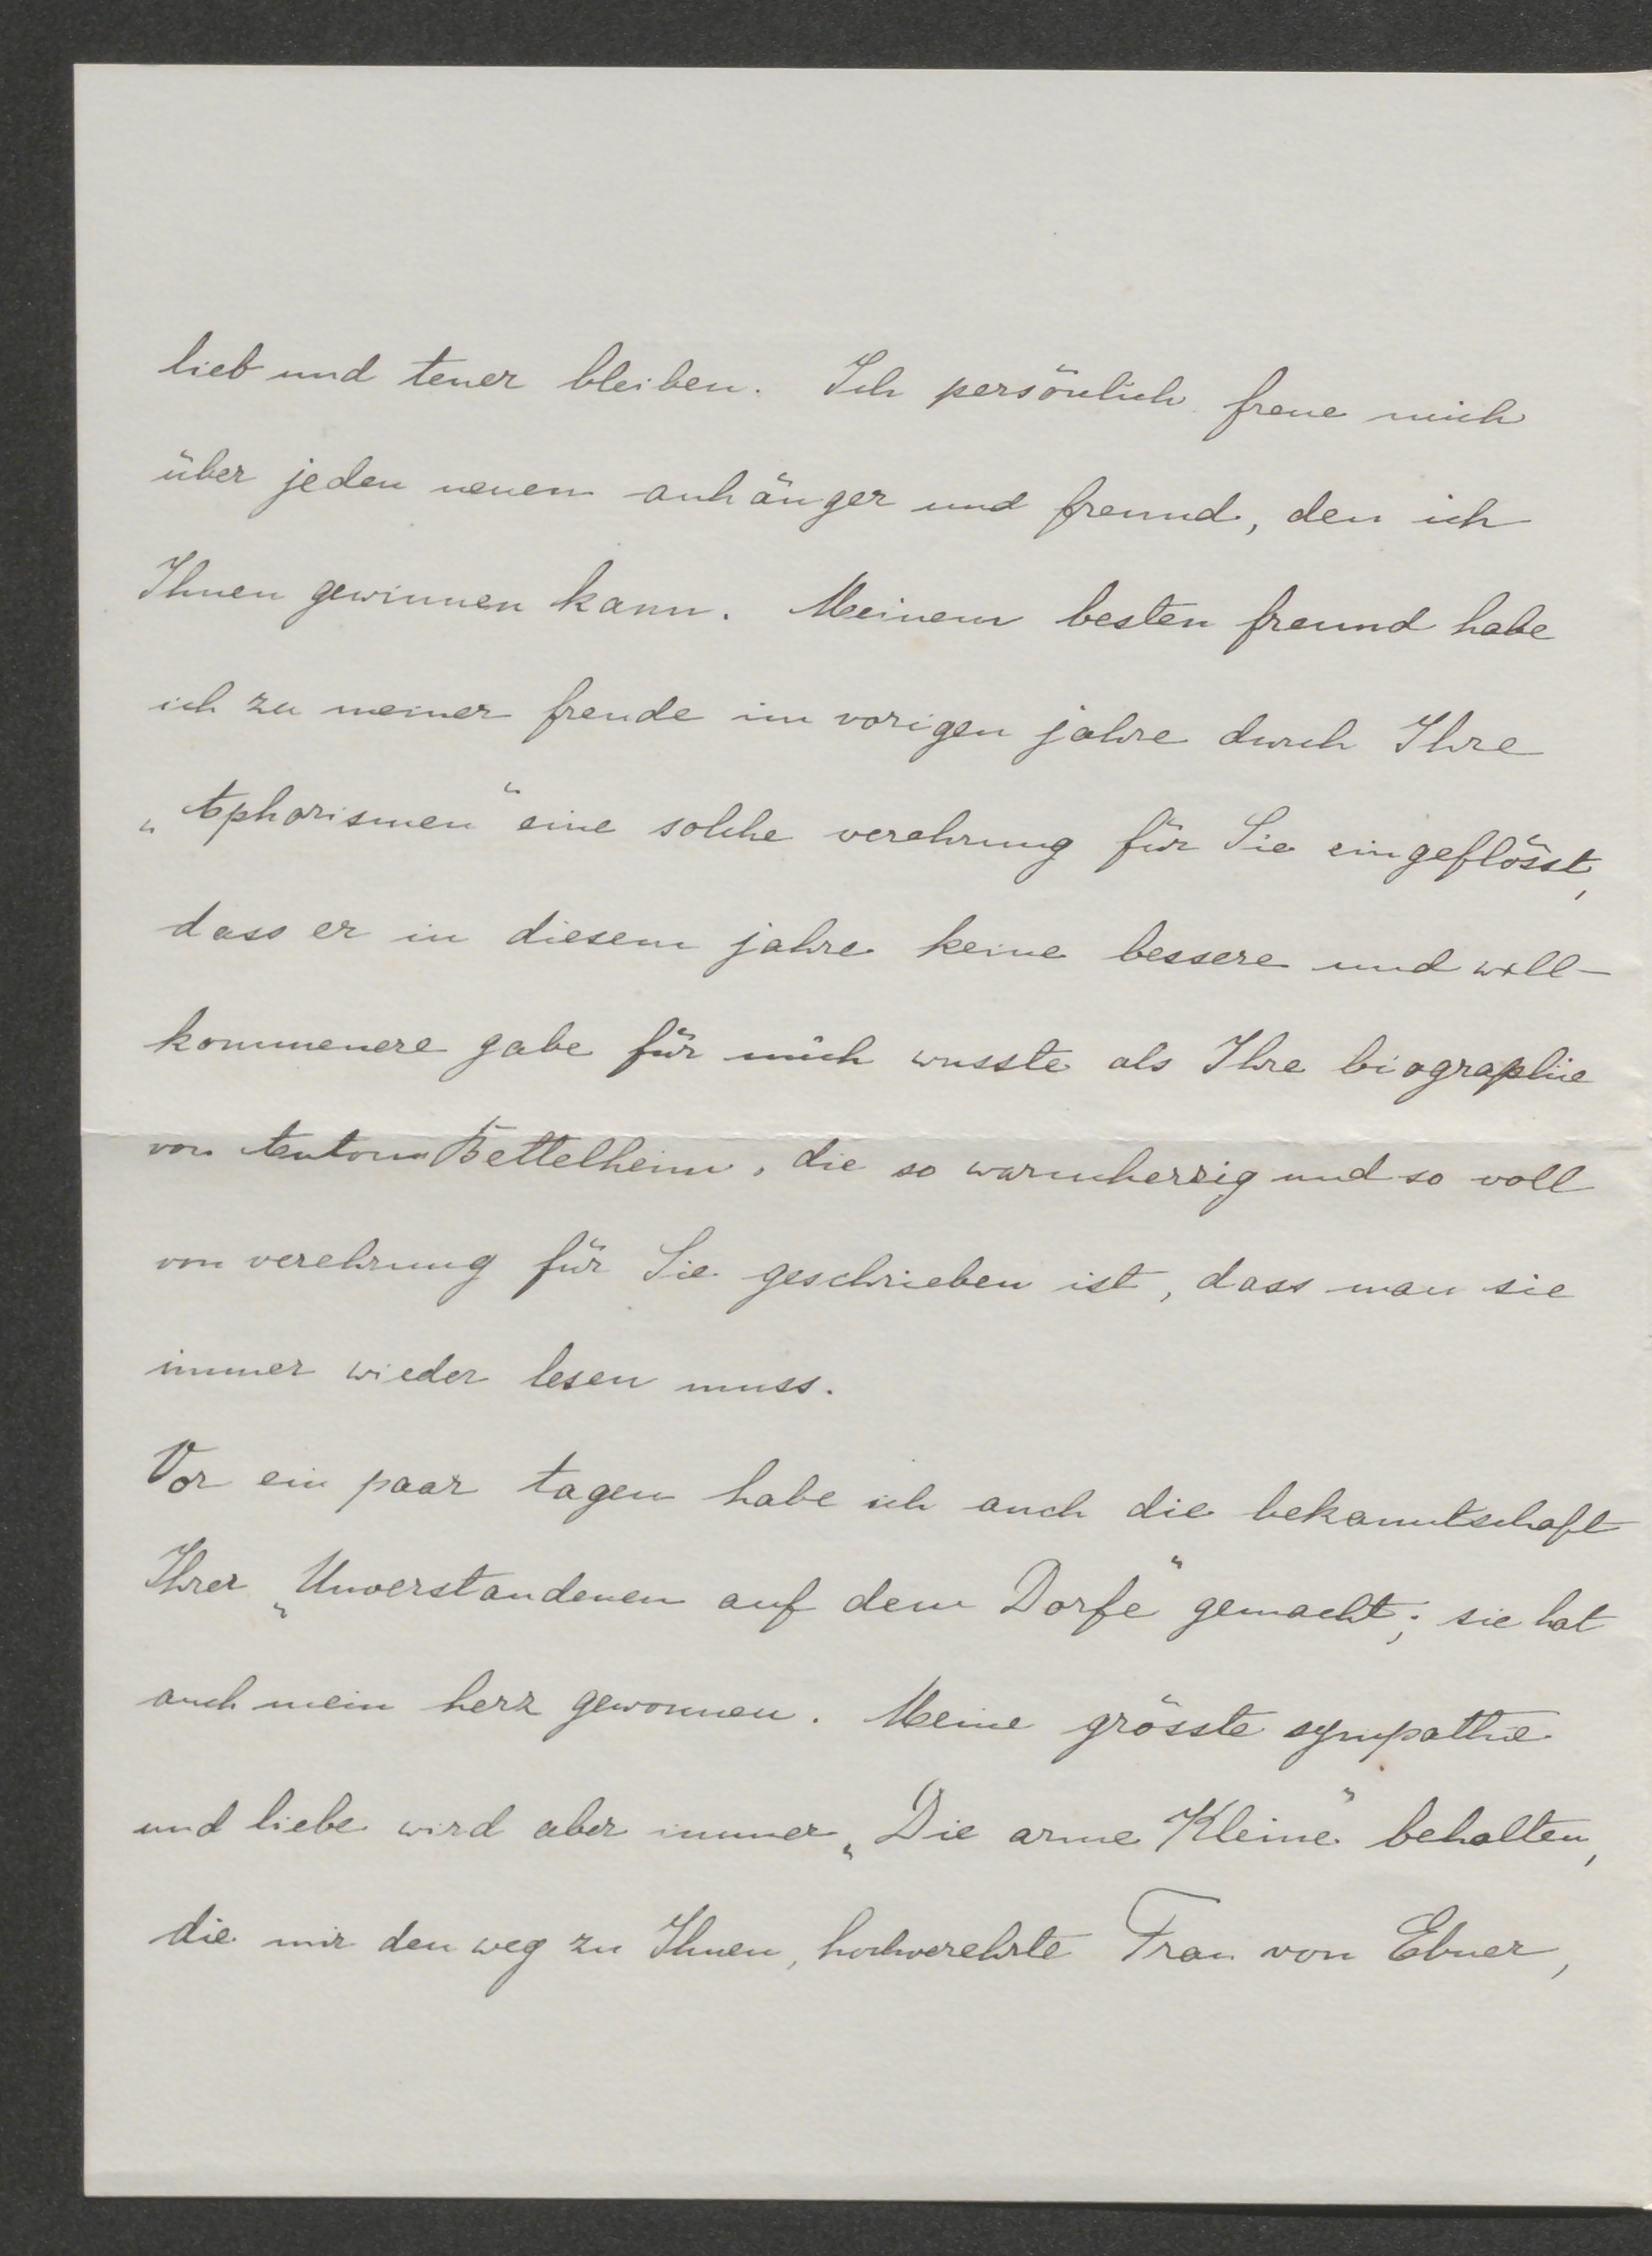 lieb und teuer bleiben. Ich persönlich freue mich
über jeden neuen anhänger und freund, den ich
Ihnen gewinnen kann. Meinem besten freund habe
ich zu meiner freude im vorigen jahre durch Ihre
„Aphorismen“ eine solche verehrung für Sie eingeflösst,
dass er in diesem jahre keine bessere und will-
kommenere gabe für mich wusste als Ihre biographie
von Anton Bettelheim, die so warmherzig und so voll
von verehrung für Sie geschrieben ist, dass man sie
immer wieder lesen muss.
Vor ein paar tagen habe ich auch die bekanntschaft
Ihrer „Unverstandenen auf dem Dorfe“ gemacht; sie hat
auch mein herz gewonnen. Meine grösste sympathie
und liebe wird aber immer „Die arme Kleine“ behalten,
die mir den weg zu Ihnen, hochverehrte Frau von Ebner,